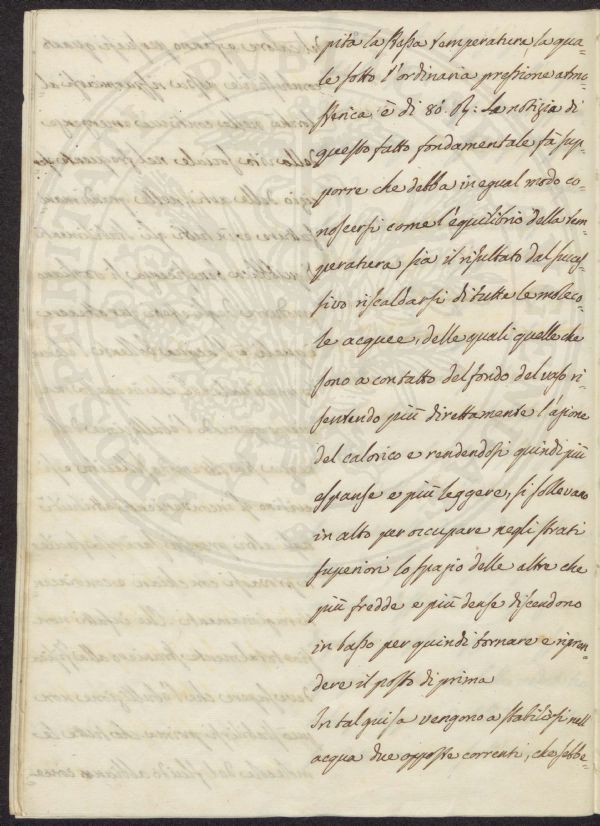 pita la stessa temperatura, la qua-
le sotto l'ordinaria pressione atmo-
sferica è di 80. R. La notizia di
questo fatto fondamentale fa sup-
porre che debba in egual modo co-
noscersi come l'equilibrio della tem-
peratura sia il risultato dal succes-
sivo riscaldarsi di tutte le moleco-
le acquee, delle quali quelle che
sono a contatto del fondo del vaso ri-
sentendo più direttamente l'azione
del calorico e rendendosi quindi più
espanse e più leggere, si sollevano
in alto per occupare negli strati
superiori lo spazio delle altre che
più fredde e più dense discendono
in basso per quindi tornare e ripren-
dere il posto di prima
In tal guisa vengono a stabilirsi nell
acqua due opposte correnti, che sebbe-